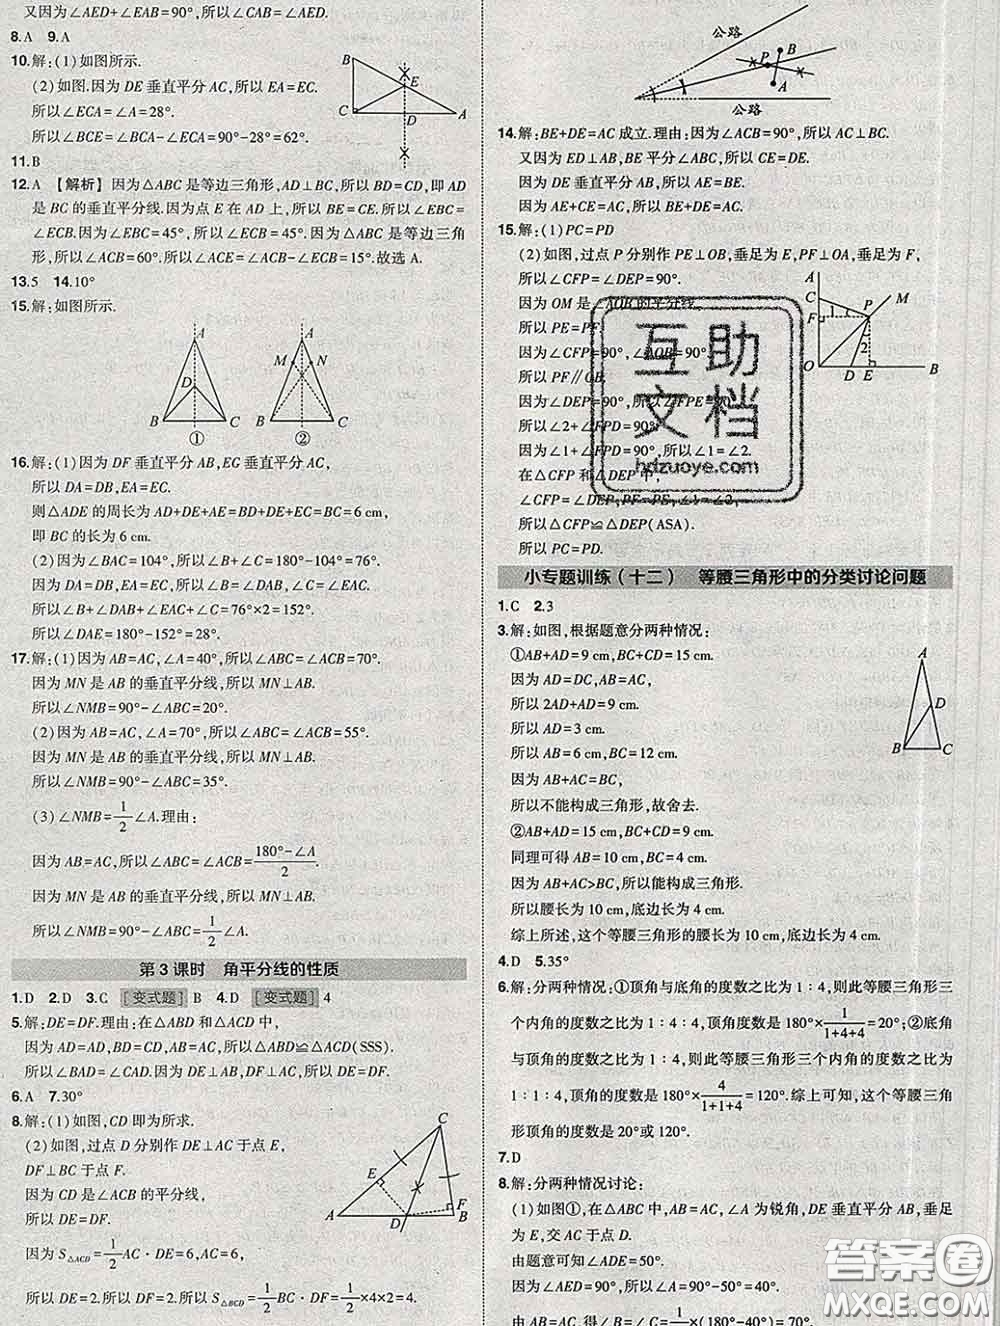 又因为∠AED+∠EAB=90°,所以∠CAB=∠AED.
8.A 9.A
10.解:(1)如图所示.
(2)如图.因为 DE 垂直平分 AC,所以 EA=EC.
所以∠ECA=∠A=28°.
所以∠BCE=∠BCA-∠ECA=90°-28°=62°.
B
E
C
D
A
11.B
12.A 【解析】 因为△ABC 是等边三角形,AD⊥BC,所以 BD=CD,即 AD
是 BC 的垂直平分线.因为点 E 在 AD 上,所以 BE=CE.所以∠EBC=
∠ECB.因为∠EBC=45°,所以∠ECB=45°.因为△ABC 是等边三角
形,所以∠ACB=60°.所以∠ACE=15°.故选 A.
13.5 14.10°
15.解:如图所示.
A
D
B
C
①
A
M
N
B
C
②
16.解:(1)因为 DF 垂直平分 AB,EG 垂直平分 AC,
所以 DA=DB,EA=EC.
则△ADE 的周长为 AD+DE+AE=BD+DE+EC=BC=6 cm,
即 BC 的长为 6 cm.
(2)因为∠BAC=104°,所以∠B+∠C=180°-104°=76°.
因为 DA=DB,EA=EC,
所以∠B+∠BAD+∠C+∠CAE=76°×2=152°.
所以∠DAE=180°-152°=28°.
17.解:(1)因为 AB=AC,∠A=40°,所以∠ABC=70°.
因为 MN 是 AB 的垂直平分线,所以 MN⊥AB.
所以∠NMB=90°-∠ABC=20°.
(2)因为 AB=AC,∠A=70°,所以∠ABC=55°.
因为 MN 是 AB 的垂直平分线,所以 MN⊥AB.
所以∠NMB=90°-∠ABC=35°.
(3)∠NMB=1/2∠A.理由:
因为 AB=AC,所以∠ABC=∠ACB=(180°-∠A)/2.
因为 MN 是 AB 的垂直平分线,所以 MN⊥AB.
所以∠NMB=90°-∠ABC=1/2∠A.
第 3 课时 角平分线的性质
1.D 2.D 3.C [变式题] B 4.D [变式题] 4
5.解:DE=DF.理由:在△ABD 和△ACD 中,
因为 AD=AD,BD=CD,AB=AC,所以△ABD≌△ACD(SSS).
所以∠BAD=∠CAD.因为 DE⊥AB,DF⊥AC,所以 DE=DF.
6.A 7.30°
8.解:(1)如图,CD 即为所求.
(2)如图,过点 D 分别作 DE⊥AC 于点 E,
DF⊥BC 于点 F.
因为 CD 是∠ACB 的平分线,
所以 DE=DF.
因为 S△ACD=1/2 AC·DE=6,AC=6,
所以 DE=2.所以 DF=2.所以 S△BCD=1/2 BC·DF=1/2×4×2=4.
C
E
A
D
F
B
公路
B
P
A
公路
14.解:BE+DE=AC 成立.理由:因为∠ACB=90°,所以 AC⊥BC.
又因为 ED⊥AB,BE 平分∠ABC,所以 CE=DE.
因为 DE 垂直平分 AB,所以 AE=BE.
因为 AE+CE=AC,所以 BE+DE=AC.
15.解:(1)PC=PD
(2)如图,过点 P 分别作 PE⊥OB,垂足为 E,PF⊥OA,垂足为 F,
所以∠CFP=∠DEP=90°.
因为 OM 是∠AOB 的平分线,
所以 PE=PF.
因为∠CFP=90°,∠AOB=90°,
所以 PF∥OB.
因为∠DEP=90°,所以∠FPE=90°.
所以∠2+∠FPD=90°.
因为∠1+∠FPD=90°,所以∠1=∠2.
在△CFP 和△DEP 中,
∠CFP=∠DEP,PF=PE,∠1=∠2,
所以△CFP≌△DEP(ASA).
所以 PC=PD.
A
C
F
1
P
M
2
O
D
E
B
互助
文档
hdzuoye.com
小专题训练(十二) 等腰三角形中的分类讨论问题
1.C 2.3
3.解:如图,根据题意分两种情况:
①AB+AD=9 cm,BC+CD=15 cm.
因为 AD=DC,AB=AC,
所以 2AD+AD=9 cm.
所以 AD=3 cm.
所以 AB=6 cm,BC=12 cm.
因为 AB+AC=BC,
所以不能构成三角形,故舍去.
②AB+AD=15 cm,BC+CD=9 cm.
同理可得 AB=10 cm,BC=4 cm.
因为 AB+AC>BC,所以能构成三角形.
所以腰长为 10 cm,底边长为 4 cm.
综上所述,这个等腰三角形的腰长为 10 cm,底边长为 4 cm.
A
D
B
C
4.D 5.35°
6.解:分两种情况:①顶角与底角的度数之比为 1:4,则此等腰三角形三
个内角的度数之比为 1:4:4,顶角度数是 180°×1/(1+4+4)=20°;②底角
与顶角的度数之比为 1:4,则此等腰三角形三个内角的度数之比为
1:1:4,顶角的度数是 180°×4/(1+1+4)=120°.综上可知,这个等腰三角
形顶角的度数是 20°或 120°.
7.D
8.解:分两种情况讨论:
(1)如图①,在△ABC 中,AB=AC,∠A 为锐角,DE 垂直平分 AB,垂足
为 E,交 AC 于点 D.
由题意可知∠ADE=50°.
因为∠AED=90°,所以∠A=90°-50°=40°.
因为 AB=AC,所以∠B=∠C=1/2(180°-40°)=70°.
答案圈
MXQE.COM